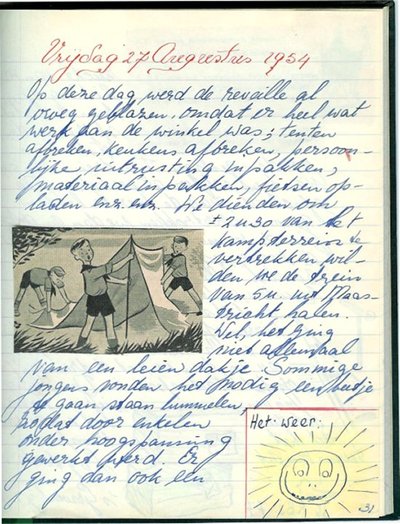 Vrijdag 27 Augustus 1954
Op deze dag werd de reveille al
vroeg geblazen, omdat er heel wat
werk aan de winkel was; tenten
afbreken, keukens afbreken, persoon-
lijke uitrusting inpakken,
materiaal inpakken, fietsen op-
laden enz. enz. We dienden om
± 2u30 van het
kampterrein te
vertrekken, wil-
den we de trein
van 5u. uit Maas-
tricht halen.
Wel, het ging
niet allemaal
van een leien dakje. Sommige
jongens vonden het nodig een beetje
te gaan staan lummelen
zodat door enkelen
onder hoogspanning
gewerkt werd. Er
ging dan ook een
Het weer:
31